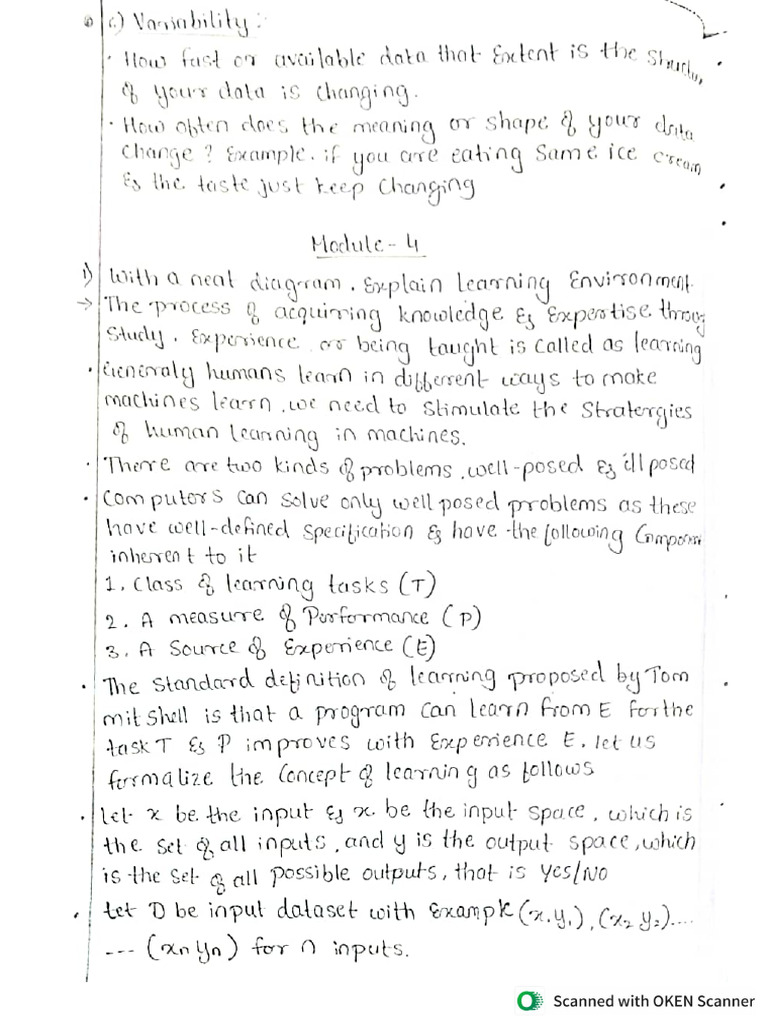 c.) Variability :
· How fast or available data that Extent is the Structu
of your data is changing.
· How often does the meaning or shape of your data
change ? Example. if you are eating Same ice cream
& the taste just keep changing
Module - 4
1) With a neat diagram. Explain Learning Environment
→ The process of acquirring knowledge & Expertise throug
Study. Experience or being taught is called as learning
· Generaly humans learn in different ways to make
machines learn, we need to stimulate the Stratergies
of human learning in machines.
· There are two kinds of problems, well-posed & ill posed
· Computors can solve only well posed problems as these
have well-defined specification & have the following Componen
inherent to it
1. Class of learning tasks (T)
2. A measure of Performance (P)
3. A Source of Experience (E)
· The standard definition of learning proposed by Tom
mitshell is that a program can learn from E for the
task T & P improves with Experience E. let us
formalize the Concept of learning as follows
· let x be the input & x. be the input space, which is
the set of all inputs, and y is the output space, which
is the set of all possible outputs, that is yes/NO
· let D be input dataset with Example (x.y₁), (x₂ y₂)....
--- (xn yn) for n inputs.
Scanned with OKEN Scanner